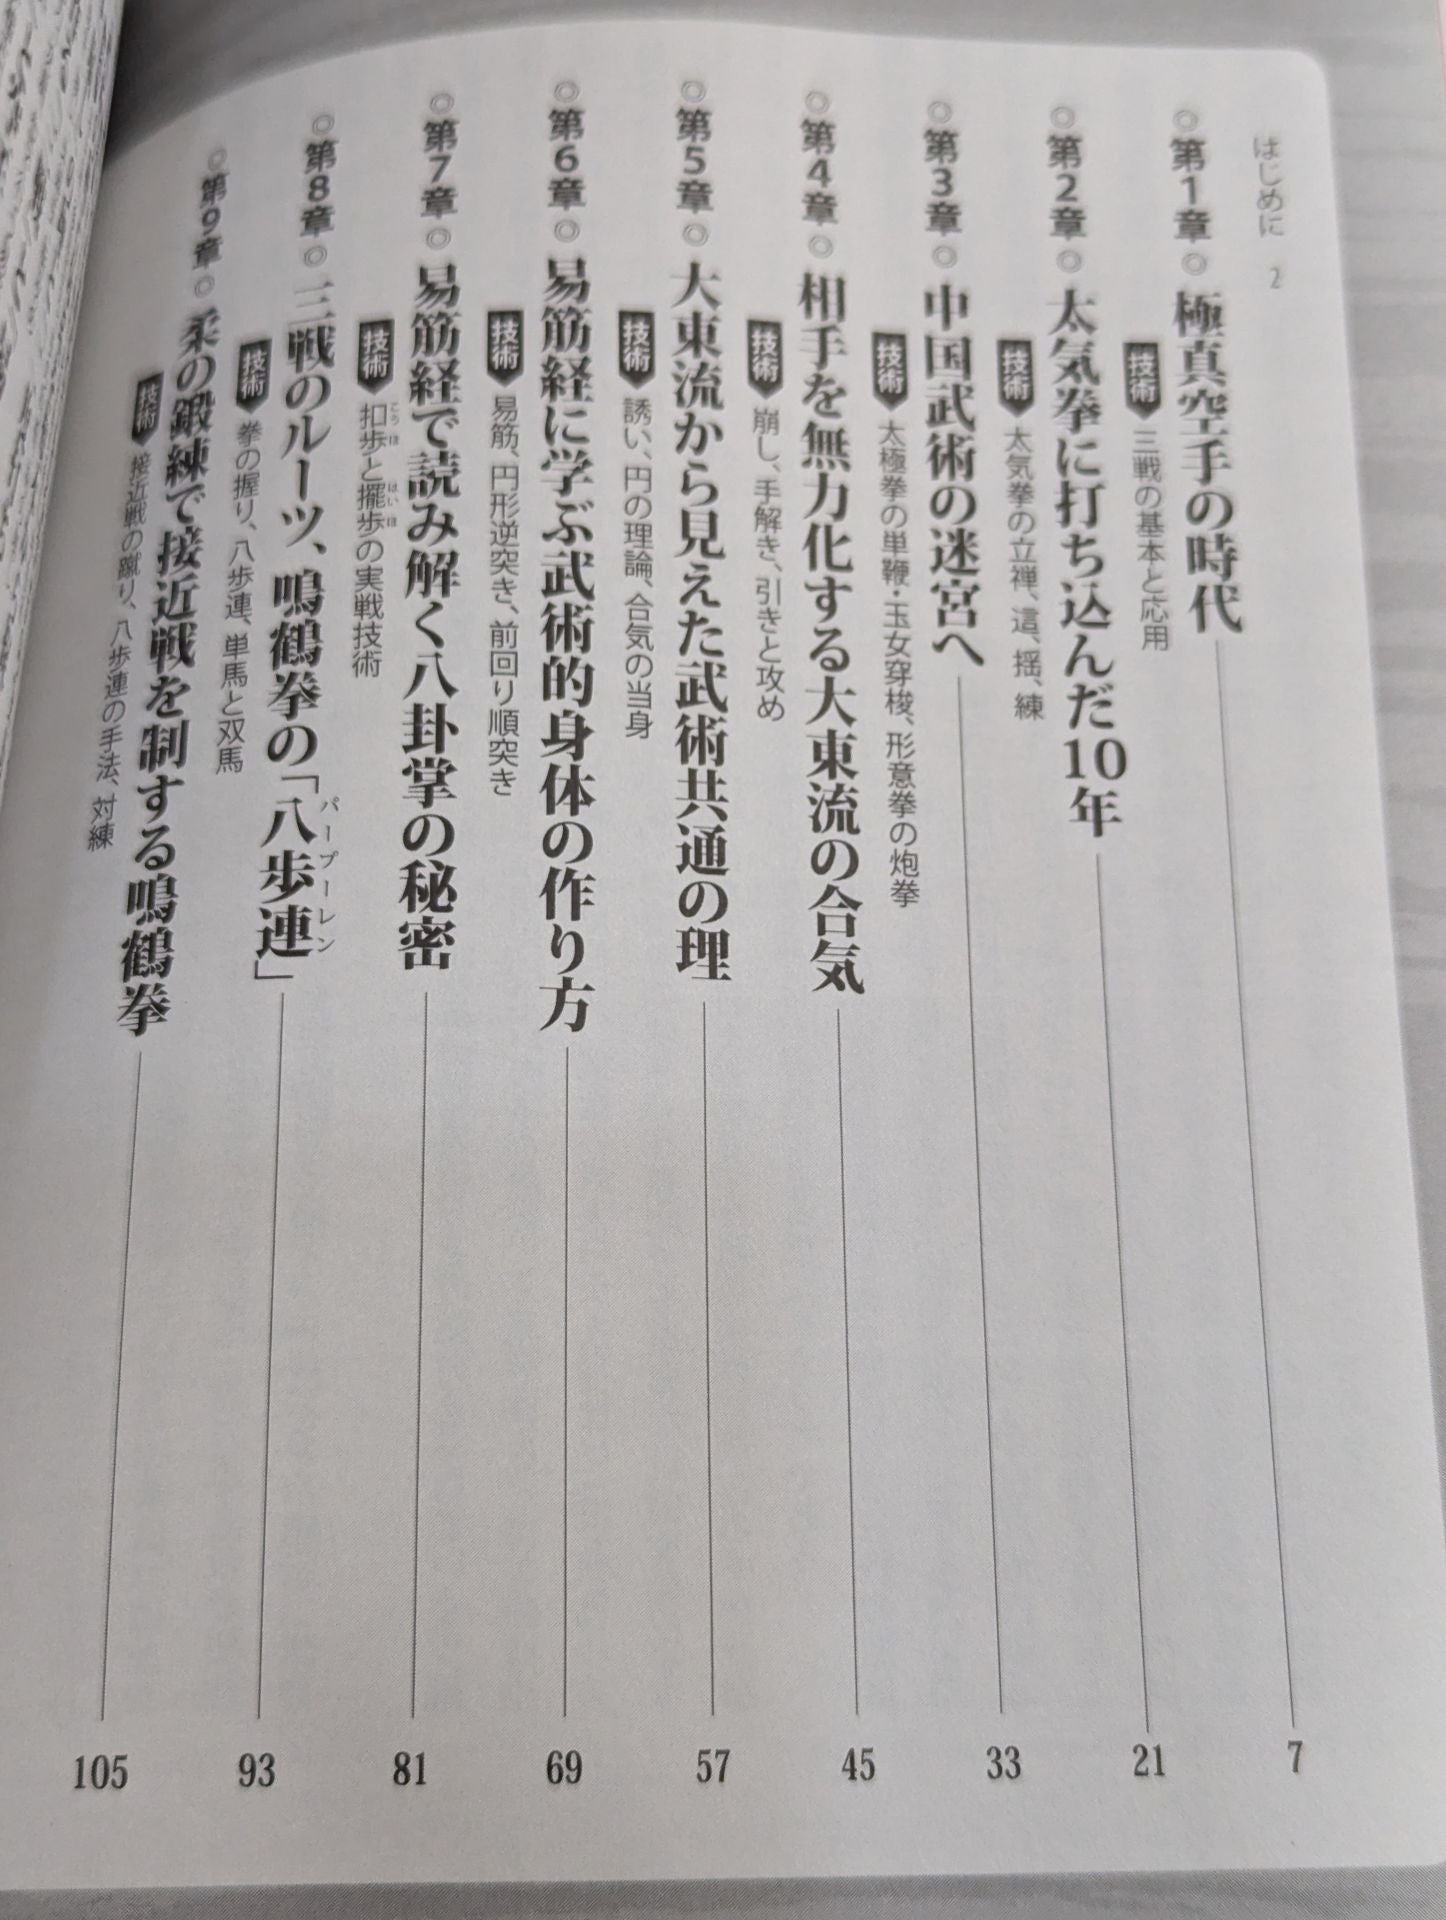 はじめに 2
◎第1章◎ 極真空手の時代 7
技術 三戦の基本と応用
◎第2章◎ 太気拳に打ち込んだ10年 21
技術 太気拳の立禅、這、揺、練
◎第3章◎ 中国武術の迷宮へ 33
技術 太極拳の単鞭・玉女穿梭、形意拳の炮拳
◎第4章◎ 相手を無力化する大東流の合気 45
技術 崩し、手解き、引きと攻め
◎第5章◎ 大東流から見えた武術共通の理 57
技術 誘い、円の理論、合気の当身
◎第6章◎ 易筋経に学ぶ武術的身体の作り方 69
技術 易筋、円形逆突き、前回り順突き
◎第7章◎ 易筋経で読み解く八卦掌の秘密 81
技術 扣歩と擺歩の実戦技術
こうほ はいほ
◎第8章◎ 三戦のルーツ、鳴鶴拳の「八歩連」 93
パープーレン
技術 拳の握り、八歩連、単馬と双馬
◎第9章◎ 柔の鍛練で接近戦を制する鳴鶴拳 105
技術 接近戦の蹴り、八歩連の手法、対練